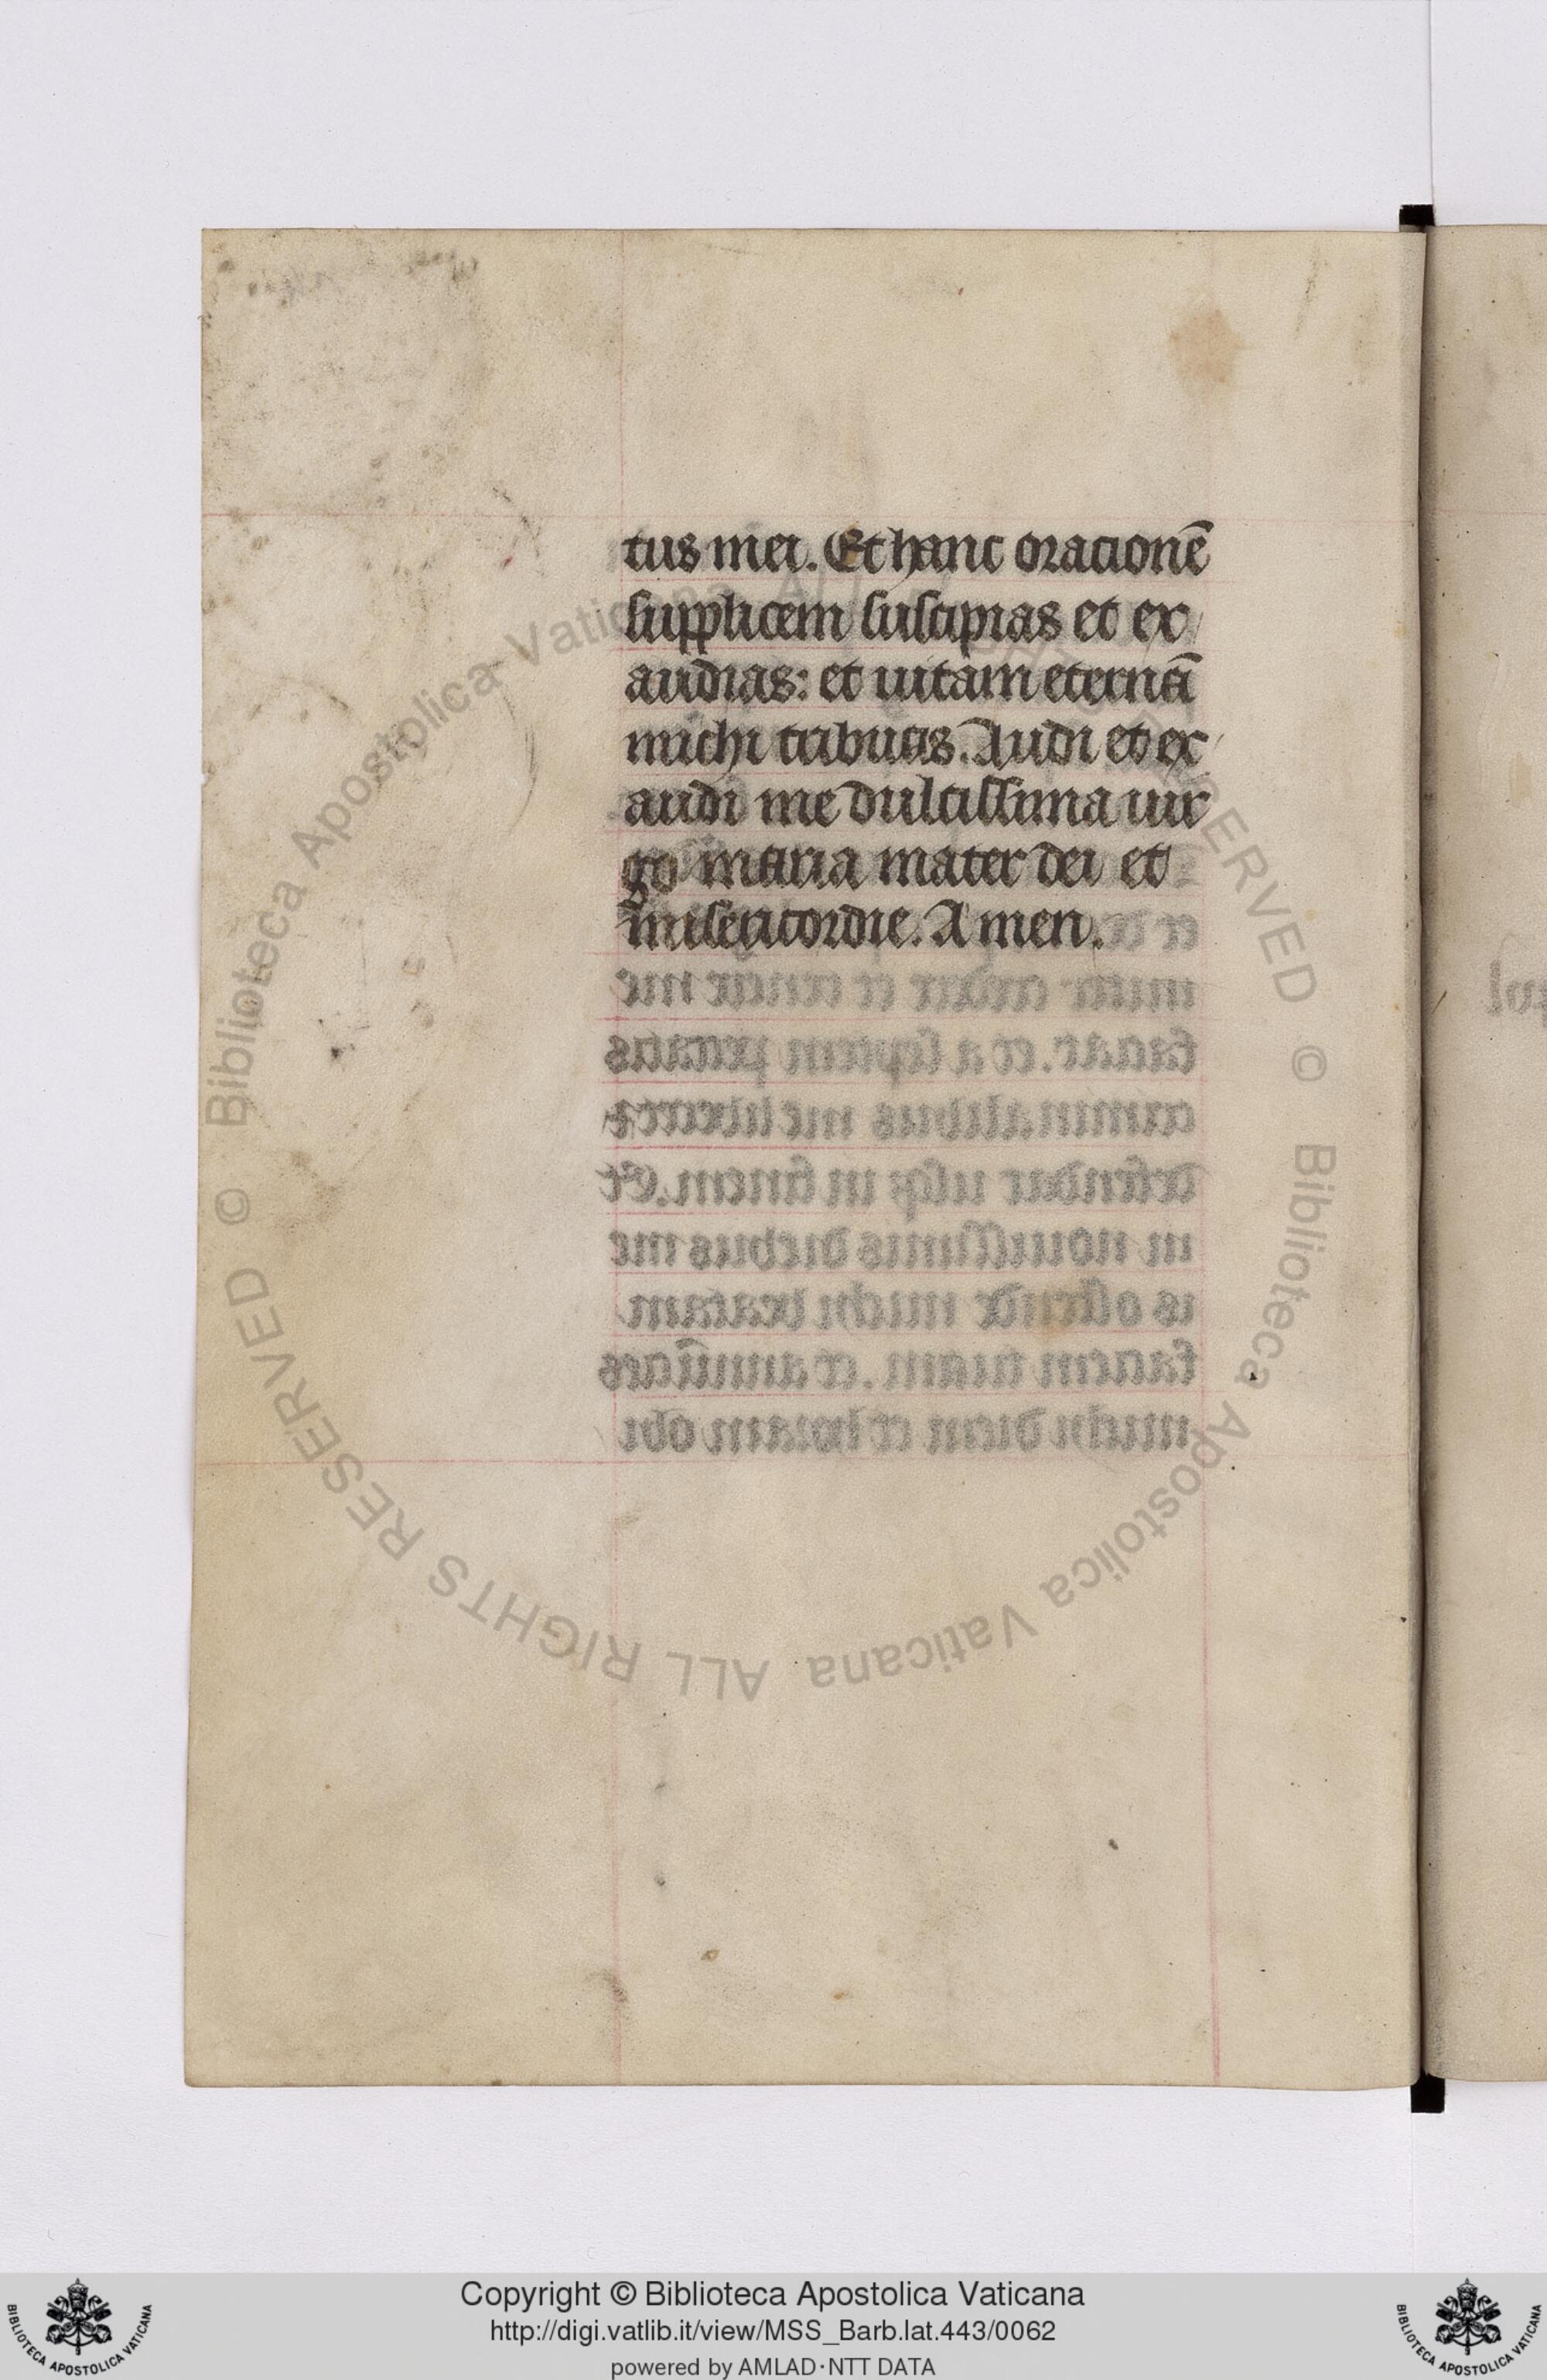 tus mei. Et hanc oracionē
supplicem suscipias et ex
audias: et uitam eternā
michi tribuas. Audi et ex
audi me dulcissima uir
go maria mater dei et
misericordie. Amen.
Biblioteca Apostolica Vaticana ALL RIGHTS RESERVED © Biblioteca Apostolica Vaticana ALL RIGHTS RESERVED ©
Copyright © Biblioteca Apostolica Vaticana
http://digi.vatlib.it/view/MSS_Barb.lat.443/0062
powered by AMLAD·NTT DATA
BIBLIOTECA APOSTOLICA VATICANA
BIBLIOTECA APOSTOLICA VATICANA